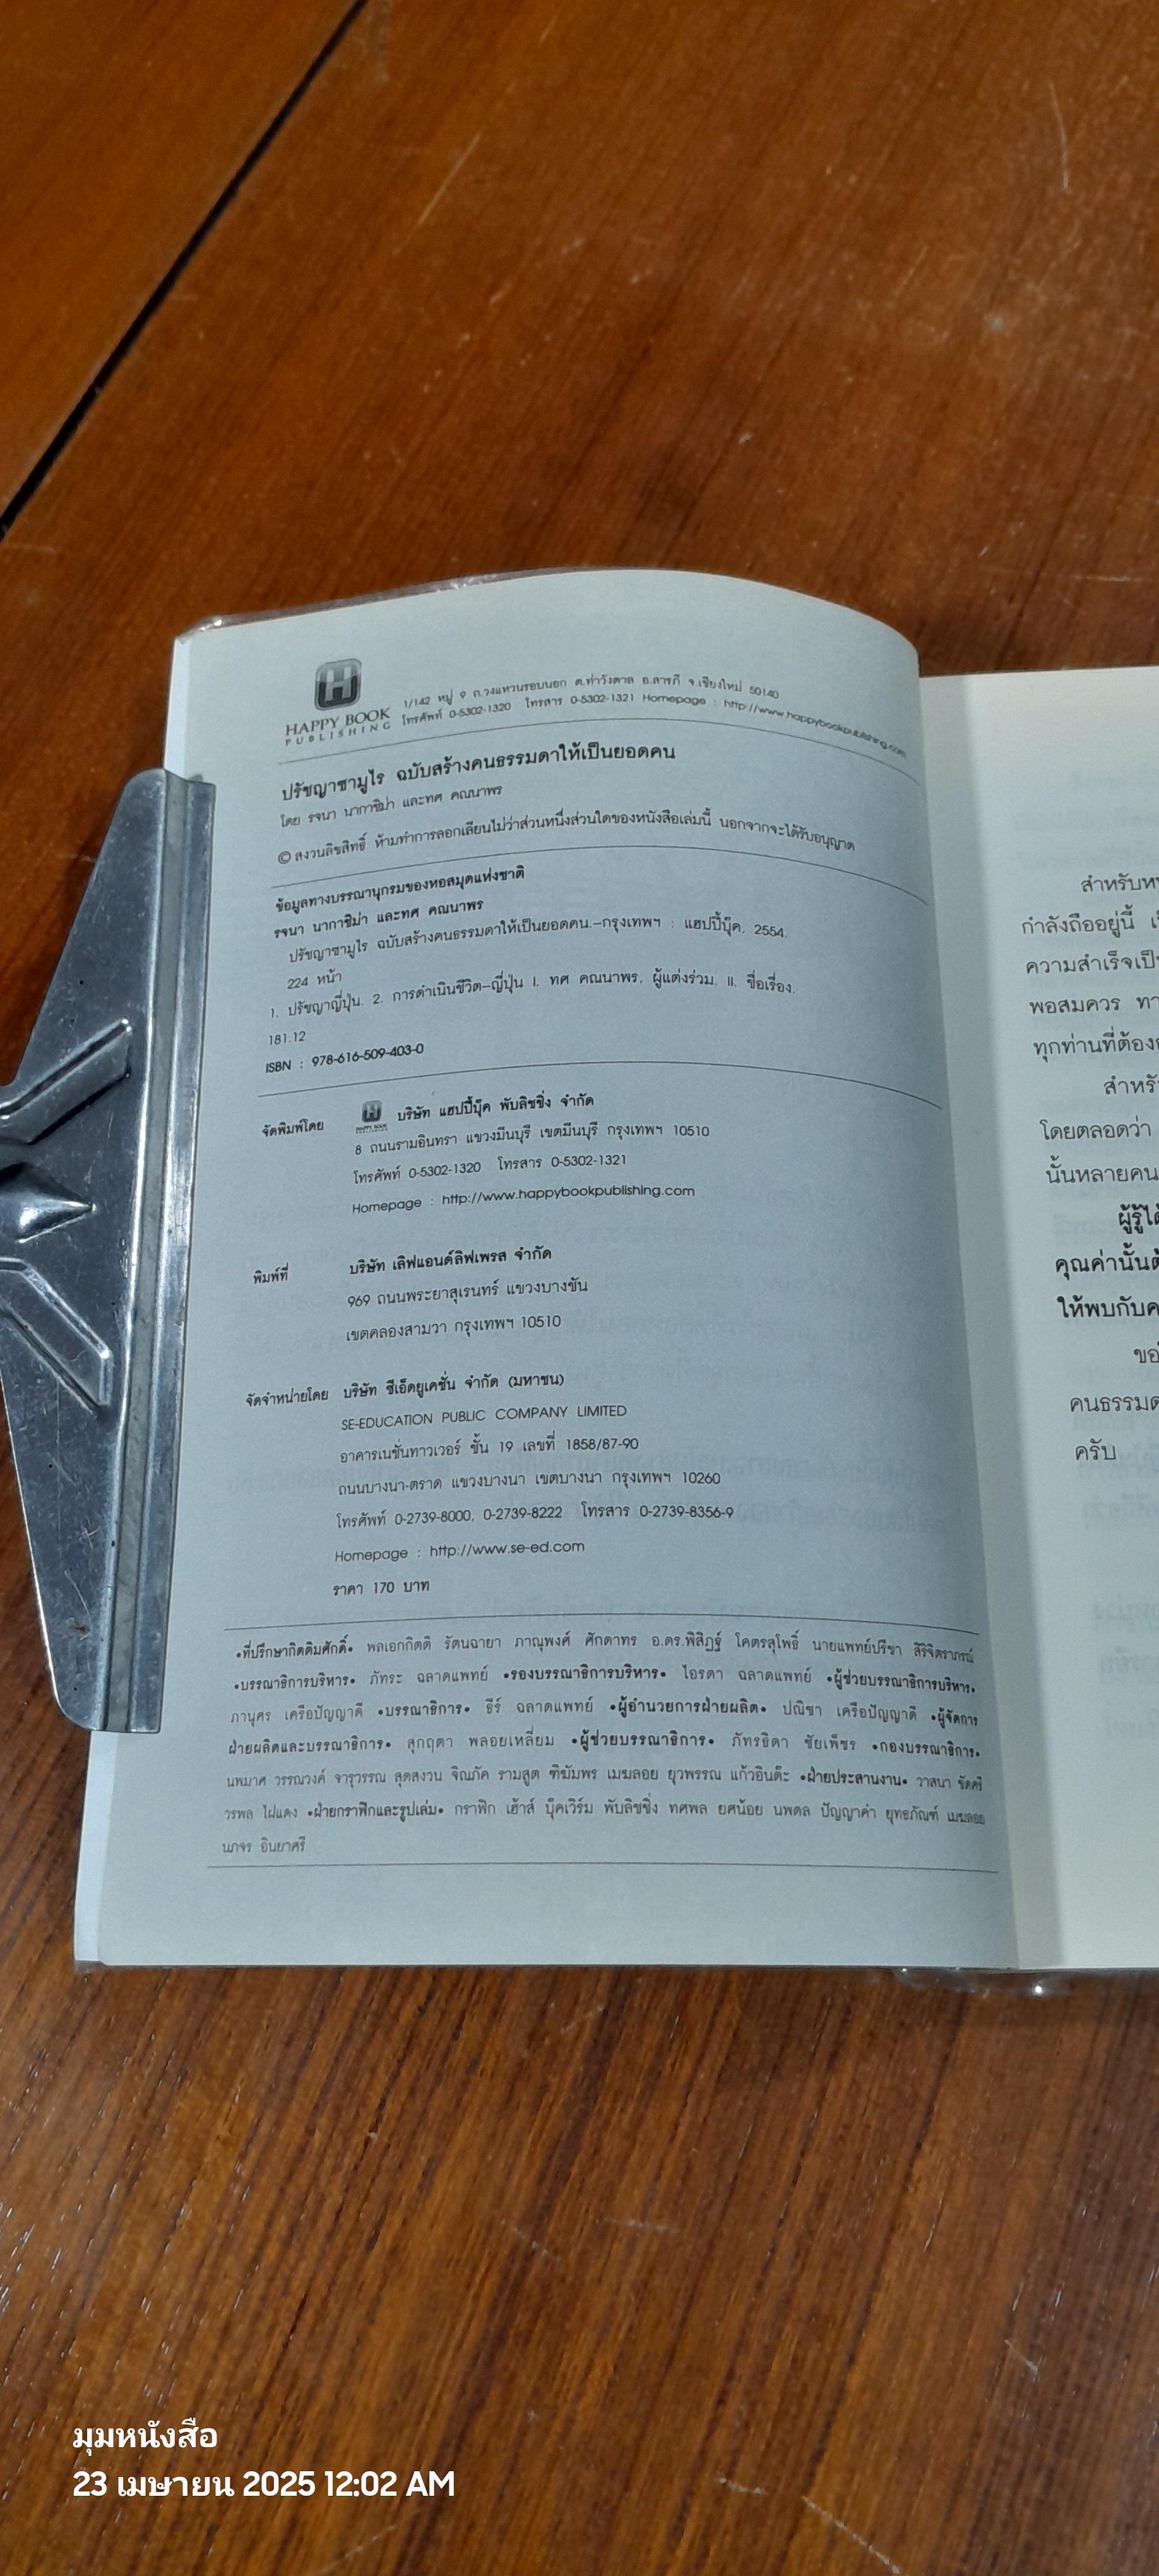 HAPPY BOOK
PUBLISHING
1/142 หมู่ 9 ถ.วงแหวนรอบนอก ต.ท่าวังตาล อ.สารภี จ.เชียงใหม่ 50140
โทรศัพท์ 0-5302-1320 โทรสาร 0-5302-1321 Homepage : http://www.happybookpublishing.com
ปรัชญาซามูไร ฉบับสร้างคนธรรมดาให้เป็นยอดคน
โดย รจนา นากาชิม่า และทศ คณนาพร
© สงวนลิขสิทธิ์ ห้ามทำการลอกเลียนไม่ว่าส่วนหนึ่งส่วนใดของหนังสือเล่มนี้ นอกจากจะได้รับอนุญาต
ข้อมูลทางบรรณานุกรมของหอสมุดแห่งชาติ
รจนา นากาชิม่า และทศ คณนาพร
ปรัชญาซามูไร ฉบับสร้างคนธรรมดาให้เป็นยอดคน.–กรุงเทพฯ : แฮปปี้บุ๊ค, 2554.
224 หน้า
1. ปรัชญาญี่ปุ่น. 2. การดำเนินชีวิต–ญี่ปุ่น I. ทศ คณนาพร, ผู้แต่งร่วม. II. ชื่อเรื่อง.
181.12
ISBN : 978-616-509-403-0
จัดพิมพ์โดย HAPPY BOOK บริษัท แฮปปี้บุ๊ค พับลิชชิ่ง จำกัด
8 ถนนรามอินทรา แขวงมีนบุรี เขตมีนบุรี กรุงเทพฯ 10510
โทรศัพท์ 0-5302-1320 โทรสาร 0-5302-1321
Homepage : http://www.happybookpublishing.com
พิมพ์ที่ บริษัท เลิฟแอนด์ลิฟเพรส จำกัด
969 ถนนพระยาสุเรนทร์ แขวงบางชัน
เขตคลองสามวา กรุงเทพฯ 10510
จัดจำหน่ายโดย บริษัท ซีเอ็ดยูเคชั่น จำกัด (มหาชน)
SE-EDUCATION PUBLIC COMPANY LIMITED
อาคารเนชั่นทาวเวอร์ ชั้น 19 เลขที่ 1858/87-90
ถนนบางนา-ตราด แขวงบางนา เขตบางนา กรุงเทพฯ 10260
โทรศัพท์ 0-2739-8000, 0-2739-8222 โทรสาร 0-2739-8356-9
Homepage : http://www.se-ed.com
ราคา 170 บาท
•ที่ปรึกษากิตติมศักดิ์• พลเอกกิตติ รัตนฉายา ภาณุพงศ์ ศักดาทร อ.ดร.พิสิฏฐ์ โคตรสุโพธิ์ นายแพทย์ปรีชา สิริจิตราภรณ์
•บรรณาธิการบริหาร• ภัทระ ฉลาดแพทย์ •รองบรรณาธิการบริหาร• ไอรดา ฉลาดแพทย์ •ผู้ช่วยบรรณาธิการบริหาร•
ภานุศร เครือปัญญาดี •บรรณาธิการ• ธีร์ ฉลาดแพทย์ •ผู้อำนวยการฝ่ายผลิต• ปณิชา เครือปัญญาดี •ผู้จัดการ
ฝ่ายผลิตและบรรณาธิการ• สุกฤตา พลอยเหลี่ยม •ผู้ช่วยบรรณาธิการ• ภัทรธิดา ชัยเพ็ชร •กองบรรณาธิการ•
นพมาศ วรรณวงค์ จารุวรรณ สุดสงวน จิณภัค รามสูต ฑิฆัมพร เมฆลอย ยุวพรรณ แก้วอินต๊ะ •ฝ่ายประสานงาน• วาสนา ขัดศรี
วรพล ไฝแดง •ฝ่ายกราฟิกและรูปเล่ม• กราฟิก เฮ้าส์ บุ๊คเวิร์ม พับลิชชิ่ง ทศพล ยศน้อย นพดล ปัญญาคำ ยุทธภัณฑ์ เมฆลอย
นภจร อินยาศรี
สำหรับห
กำลังถืออยู่นี้
ความสำเร็จเป็
พอสมควร ทา
ทุกท่านที่ต้อง
สำหรั
โดยตลอดว่า
นั้นหลายคน
ผู้รู้ได้
คุณค่านั้นต้
ให้พบกับค
ขอ
คนธรรมด
ครับ
มุมหนังสือ
23 เมษายน 2025 12:02 AM